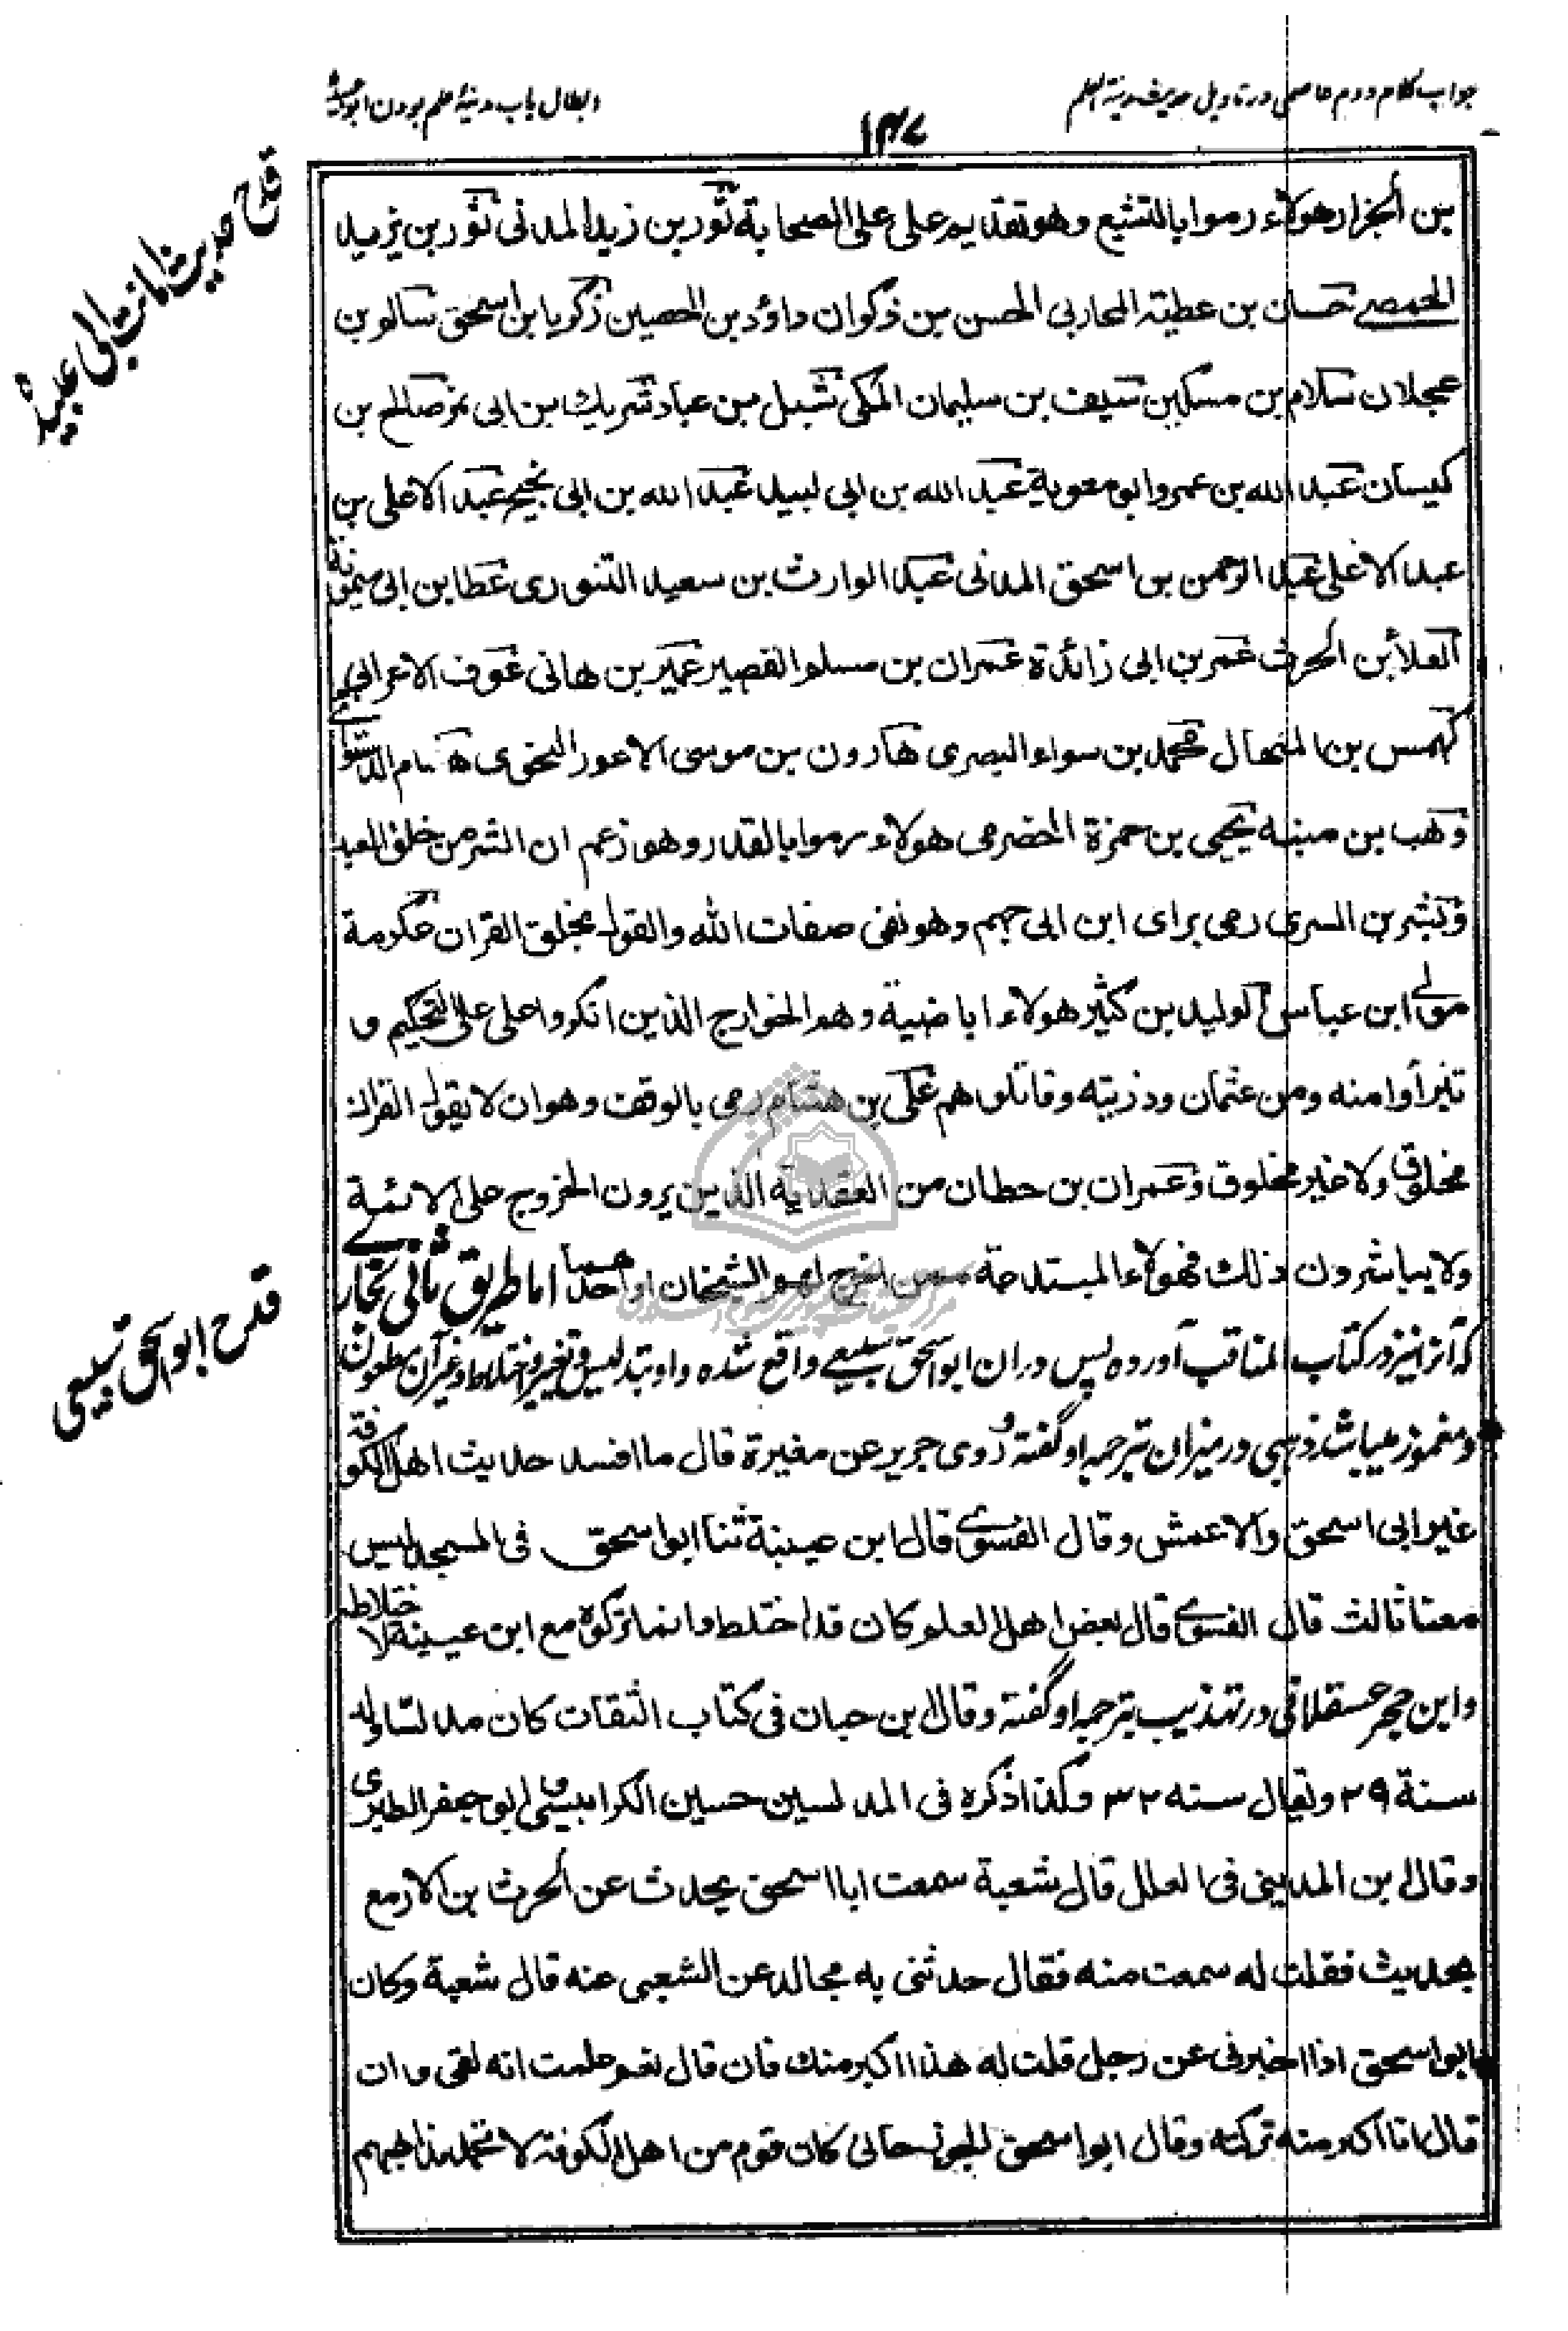 جواب کلام دوم عاصمی در تاویل حدیث مدینة العلم
ابطال باب مدینۀ علم بودن ابو عبیده
۱۳۷
بن الجزار هولاء رموا بالتشیع وهو تقدیم علی علی الصحابة ثور بن زید المدنی ثور بن یزید
الحمصی حسان بن عطیة المحاربی الحسن بن ذکوان داؤد بن الحصین زکریا بن اسحق سالم بن
عجلان سلام بن مسکین سیف بن سلیمان المکی شبل بن عباد شریک بن ابی نمر صالح بن
کیسان عبد الله بن عمرو ابو معویة عبد الله بن ابی لبید عبد الله بن ابی نجیح عبد الاعلی بن
عبد الاعلی عبد الرحمن بن اسحق المدنی عبد الوارث بن سعید التنوری عطا بن ابی میمونة
العلأ بن الحرث عمر بن ابی زائدة عمران بن مسلم القصیر عمیر بن هانی عوف الاعرابی
کهمس بن المنهال محمد بن سواء البصری هارون بن موسی الاعور النحوی هشام الدستوائی
وهب بن منبه یحیی بن حمزة الحضرمی هولاء رموا بالقدر وهو زعم ان الشر من خلق العبد
وبشر بن السری رمی برای ابن ابی جهم وهو نفی صفات الله والقول بخلق القران عکرمة
مولی ابن عباس الولید بن کثیر هولاء اباضیة وهم الخوارج الذین انکروا علی علی التحکیم و
تبرأوا منه ومن عثمان وذریته وقاتلوهم علی بن هشام رمی بالوقف وهو ان لا یقول القران
مخلوق ولا غیر مخلوق وعمران بن حطان من العقدیة الذین یرون الخروج علی الائمة
ولا یباشرون ذلک فهولاء المبتدعة ممن اخرج لهم الشیخان او احدهما اما طریق ثانی بخاری
که آنرا نیز در کتاب المناقب آورده پس دران ابو اسحق سبیعی واقع شده و او بتدلیس و تغیر و اختلاط و غیر آن مطعون
و مغموز میباشد ذهبی در میزان بترجمه او گفته و روی جریر عن مغیرة قال ما افسد حدیث اهل الکوفة
غیر ابی اسحق والاعمش وقال الفسوی قال ابن عیینة ثنا ابو اسحق فی المسجد لیس
معنا ثالث قال الفسوی قال بعض اهل العلم کان قد اختلط وانما ترکوه مع ابن عیینة لاختلاطه
و ابن حجر عسقلانی در تهذیب بترجمه او گفته وقال ابن حبان فی کتاب الثقات کان مدلسا ولد
سنة ۲۹ ویقال سنه ۳۲ وکذا ذکره فی المدلسین حسین الکرابیسی و ابو جعفر الطبری
وقال ابن المدینی فی العلل قال شعبة سمعت ابا اسحق یحدث عن الحرث بن الازمع
بحدیث فقلت له سمعت منه فقال حدثنی به مجالد عن الشعبی عنه قال شعبة وکان
ابو اسحق اذا اخبرنی عن رجل قلت له هذا اکبر منک فان قال نعم علمت انه لقی وان
قال انا اکبر منه ترکته وقال ابو اسحق الجوزجانی کان قوم من اهل الکوفة لا تحمد مذاهبهم
قدح حدیث امانت ابی عبیده
قدح ابو اسحق سبیعی